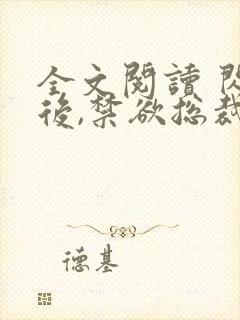 全文閱讀 閃
後,禁欲总裁
德基